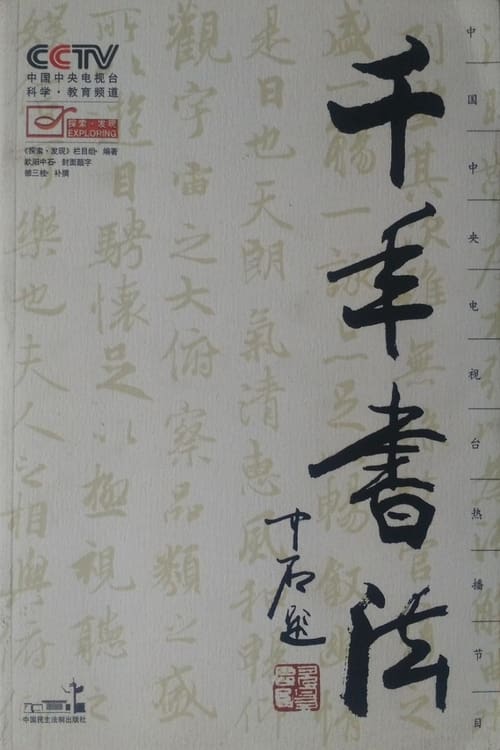 CCTV
中国中央电视台
科学·教育频道
探索·发现
EXPLORING
《探索·发现》栏目组·编著
欧阳中石·封面题字
千年书法
中石题
中国中央电视台热播节目
盛一觴一詠亦足以暢敘幽情
是日也天朗氣清惠風和暢仰
觀宇宙之大俯察品類之盛
所以遊目騁懷足以極視聽之
娛信可樂也夫人之相與俯
中国民主法制出版社